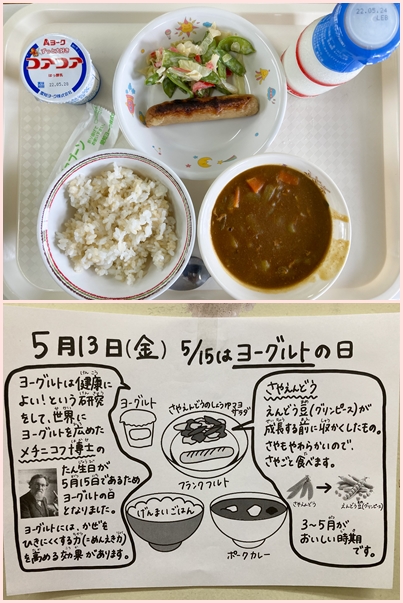 Aヨーグ
コアコア
はっ酵乳
22.05.19
22.05.24
スプーン
5月13日(金) 5/15はヨーグルトの日
ヨーグルトは健康に
よい!という研究
をして、世界に
ヨーグルトを広めた
メチニコフ博士の
たん生日が
5月15日であるため
ヨーグルトの日
となりました。
ヨーグルトには、かぜを
ひきにくくする力(=めんえき力)
を高める効果があります。
ヨーグルト
さやえんどうのしょうゆマヨ
サラダ
フランクフルト
げんまいごはん
ポークカレー
さやえんどう
えんどう豆(グリンピース)が
成長する前に収かくしたもの。
さやもやわらかいので、
さやごと食べます。
さやえんどう
えんどう豆(グリンピース)
3〜5月が
おいしい時期
です。